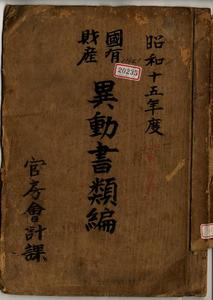 昭和十五年度
國有
財産
異動書類編
官房會計課
20235